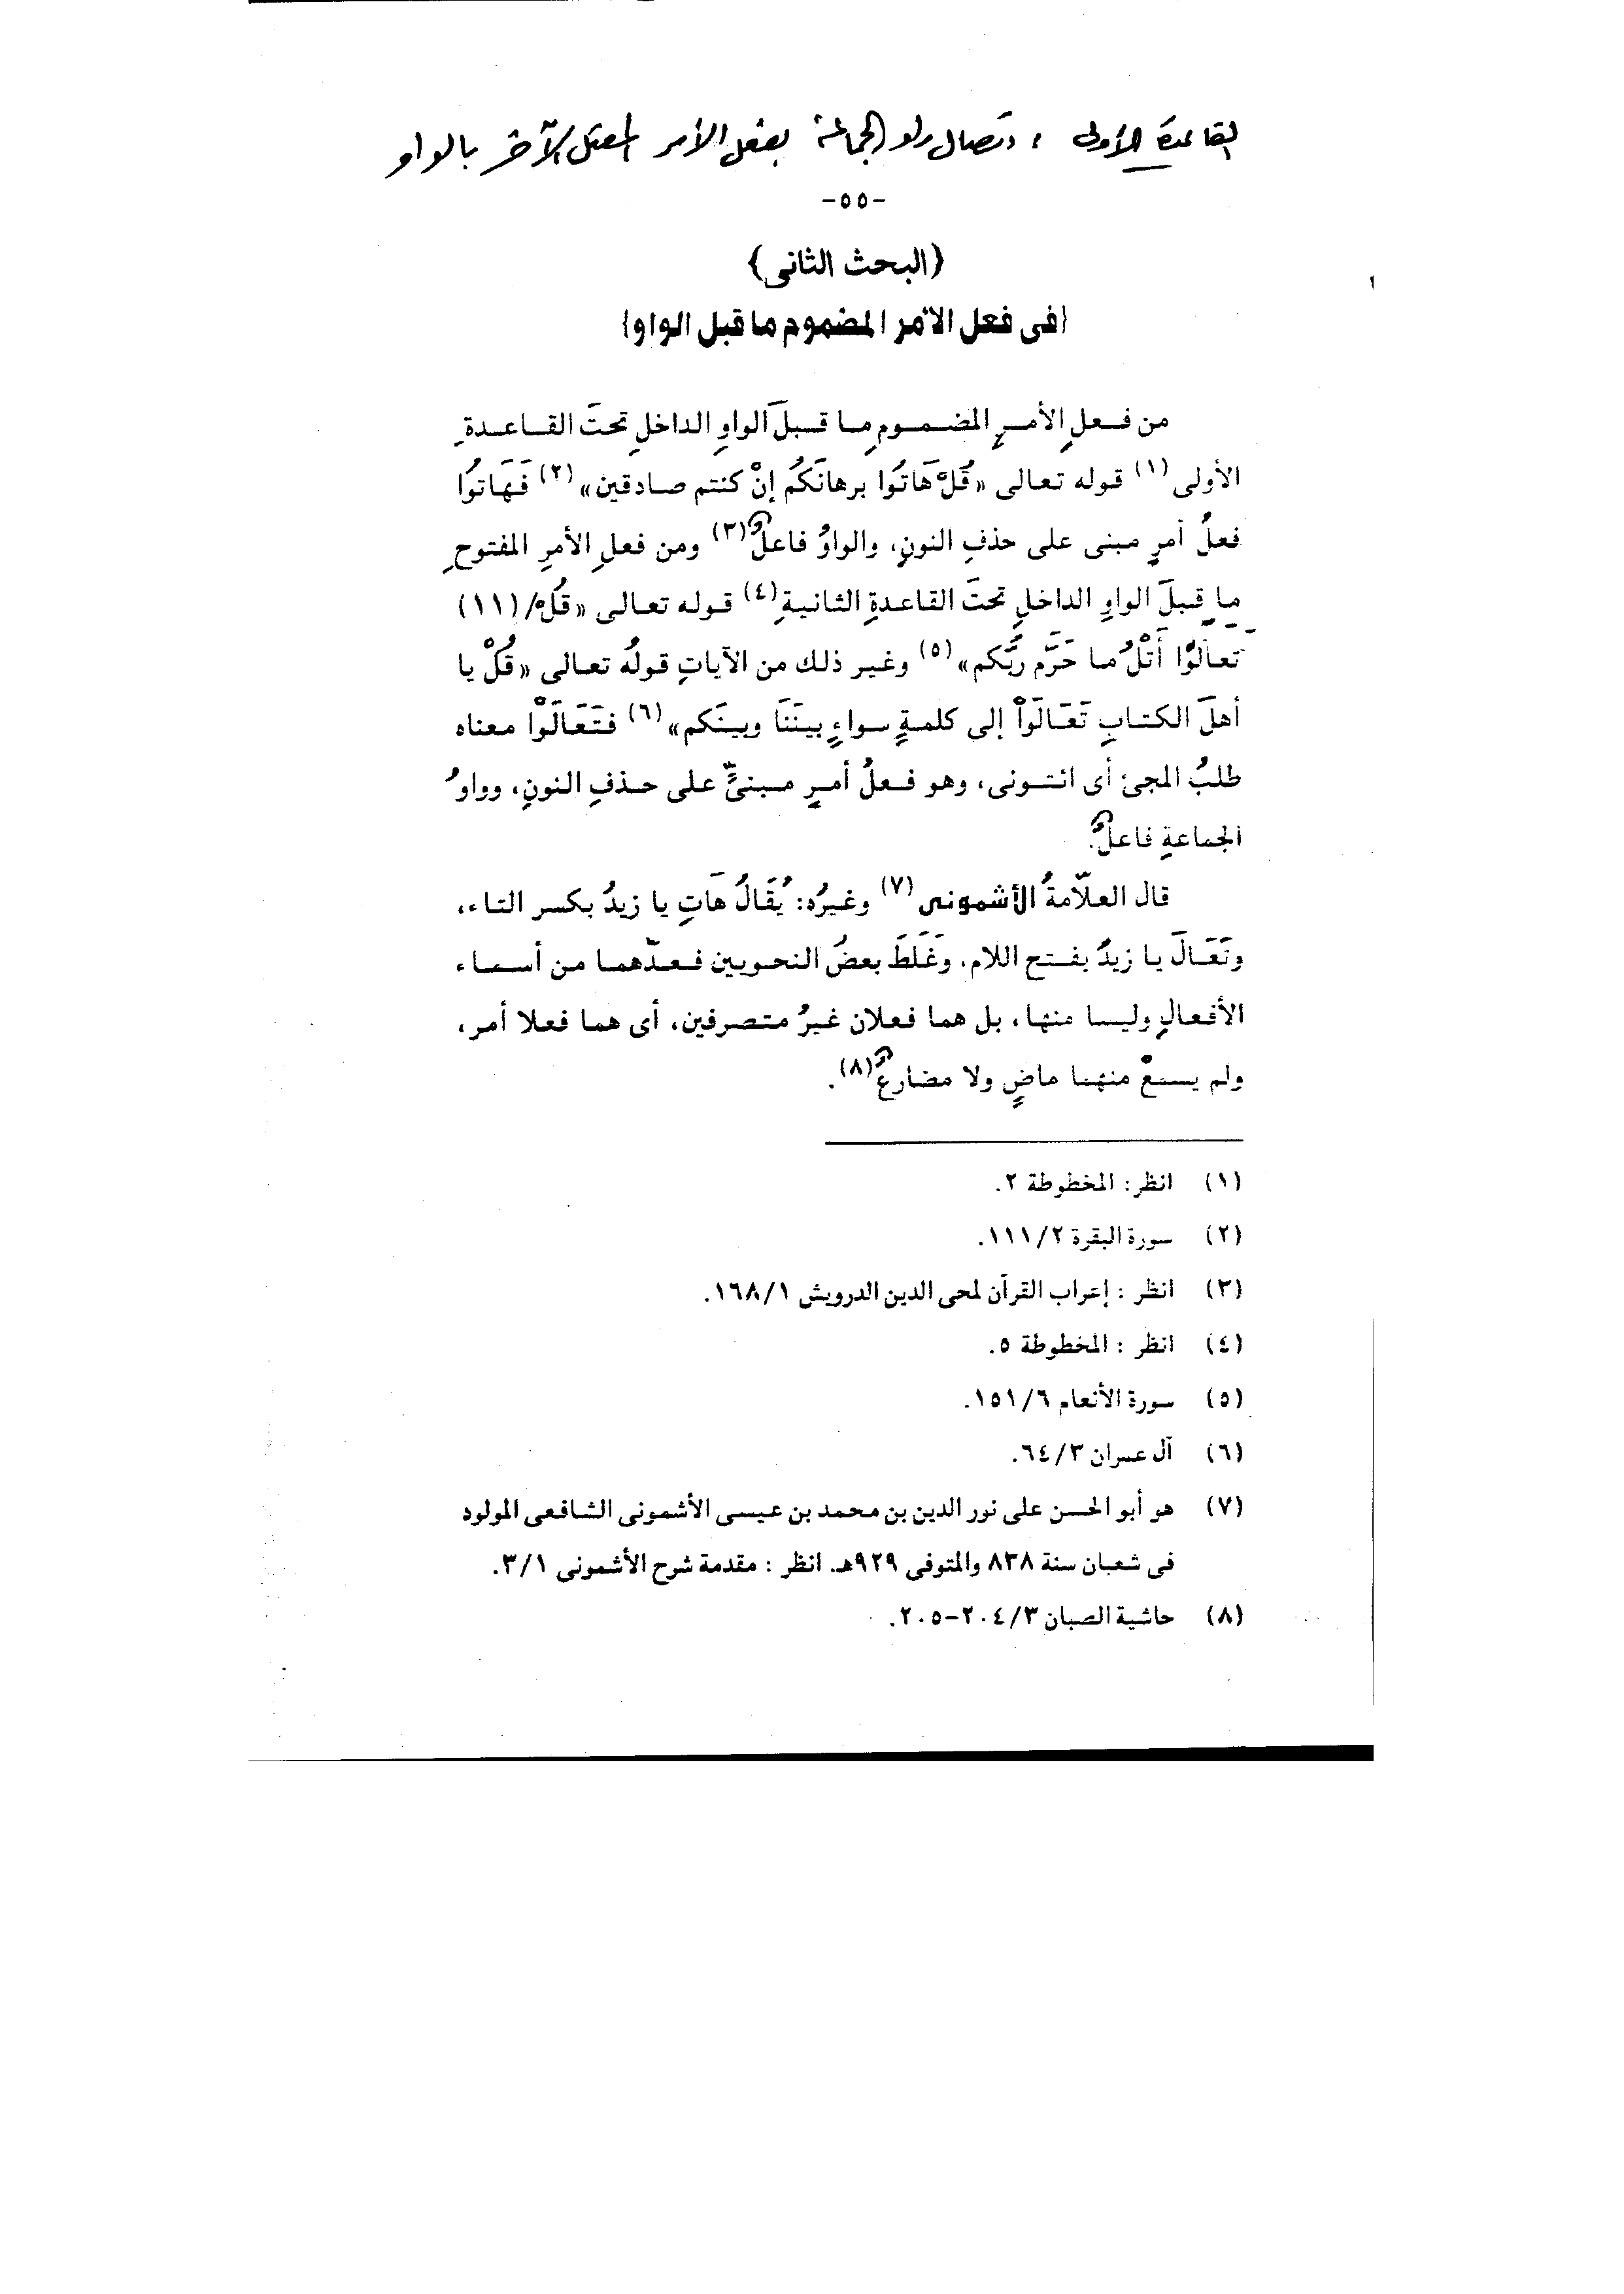 القاعدة الأولى : اتصال واو الجماعة بفعل الأمر المعتل الآخر بالواو
-٥٥-
{البحث الثانى}
{فى فعل الأمر المضموم ما قبل الواو}
من فعلِ الأمرِ المضمومِ ما قبلَ الواوِ الداخلِ تحتَ القاعدةِ
الأولى(١) قوله تعالى «قُلْ هَاتُوا برهانَكُم إنْ كنتم صادقين»(٢) فَهَاتُوا
فعلُ أمرٍ مبنى على حذفِ النونِ، والواوُ فاعلٌ(٣) ومن فعلِ الأمرِ المفتوحِ
ما قبلَ الواوِ الداخلِ تحتَ القاعدةِ الثانيةِ(٤) قوله تعالى «قُلْ/(١١)
تَعالَوْا أَتْلُ ما حَرَّمَ ربُّكم»(٥) وغير ذلك من الآياتِ قولُه تعالى «قُلْ يا
أهلَ الكتابِ تَعَالَوْا إلى كلمةٍ سواءٍ بينَنَا وبينَكم»(٦) فتَعَالَوْا معناه
طلبُ المجئ أى ائتونى، وهو فعلُ أمرٍ مبنىٌّ على حذفِ النونِ، وواوُ
الجماعةِ فاعلٌ.
قال العلّامةُ الأشمونى(٧) وغيرُه: يُقَالُ هَاتِ يا زيدُ بكسر التاء،
وتَعَالَ يا زيدُ بفتح اللام. وغَلَطَ بعضُ النحويين فعدّهما من أسماء
الأفعالِ وليسا منها، بل هما فعلان غيرُ متصرفين، أى هما فعلا أمر،
ولم يسمعْ منهما ماضٍ ولا مضارعٌ(٨).
(١) انظر: المخطوطة ٢.
(٢) سورة البقرة ١١١/٢.
(٣) انظر : إعراب القرآن لمحى الدين الدرويش ١٦٨/١.
(٤) انظر : المخطوطة ٥.
(٥) سورة الأنعام ١٥١/٦.
(٦) آل عمران ٦٤/٣.
(٧) هو أبو الحسن على نور الدين بن محمد بن عيسى الأشمونى الشافعى المولود
فى شعبان سنة ٨٣٨ والمتوفى ٩٢٩هـ. انظر : مقدمة شرح الأشمونى ٣/١.
(٨) حاشية الصبان ٢٠٤/٣-٢٠٥.